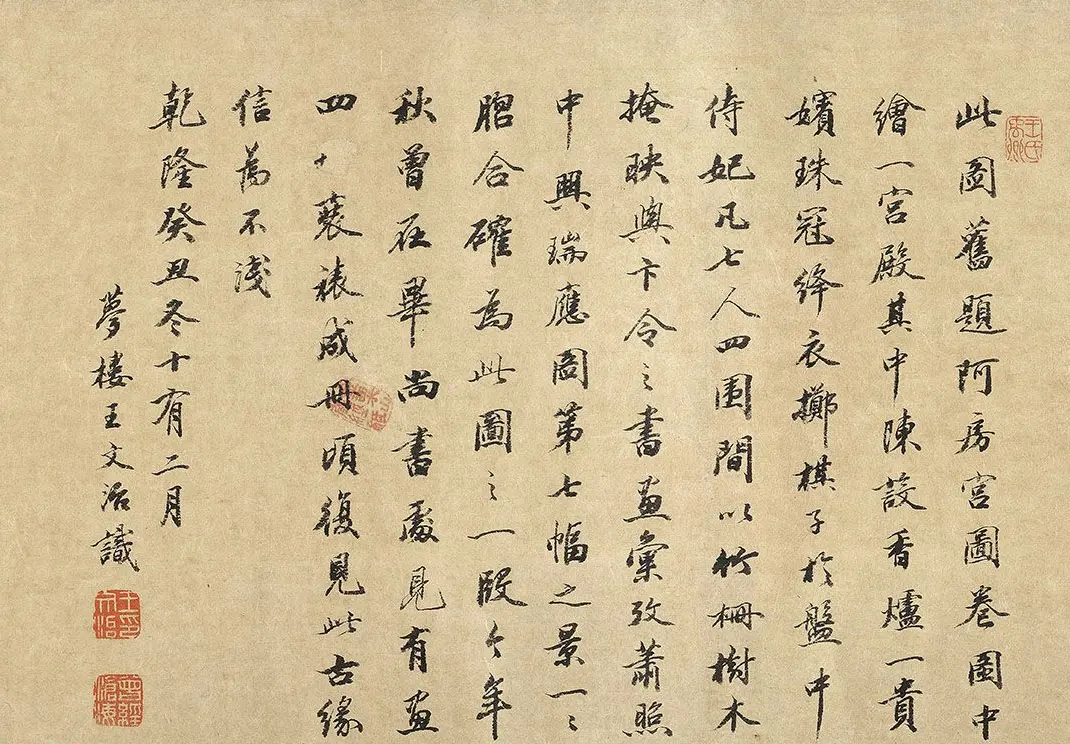 此圖舊題阿房宮圖卷圖中
繪一宮殿其中陳設香爐一貴
嬪珠冠絳衣擲棋子於盤中
侍妃凡七人四圍間以竹柵樹木
掩映與卞令之書畫彙攷蕭照
中興瑞應圖第七幅之景一〻
脗合確為此圖之一段今年
秋曾在畢尚書處見有畫
四十裘裱成冊頃復見此古緣
信為不淺
乾隆癸丑冬十有二月
夢樓王文治識
王氏禹卿
王文治印
曾經滄海